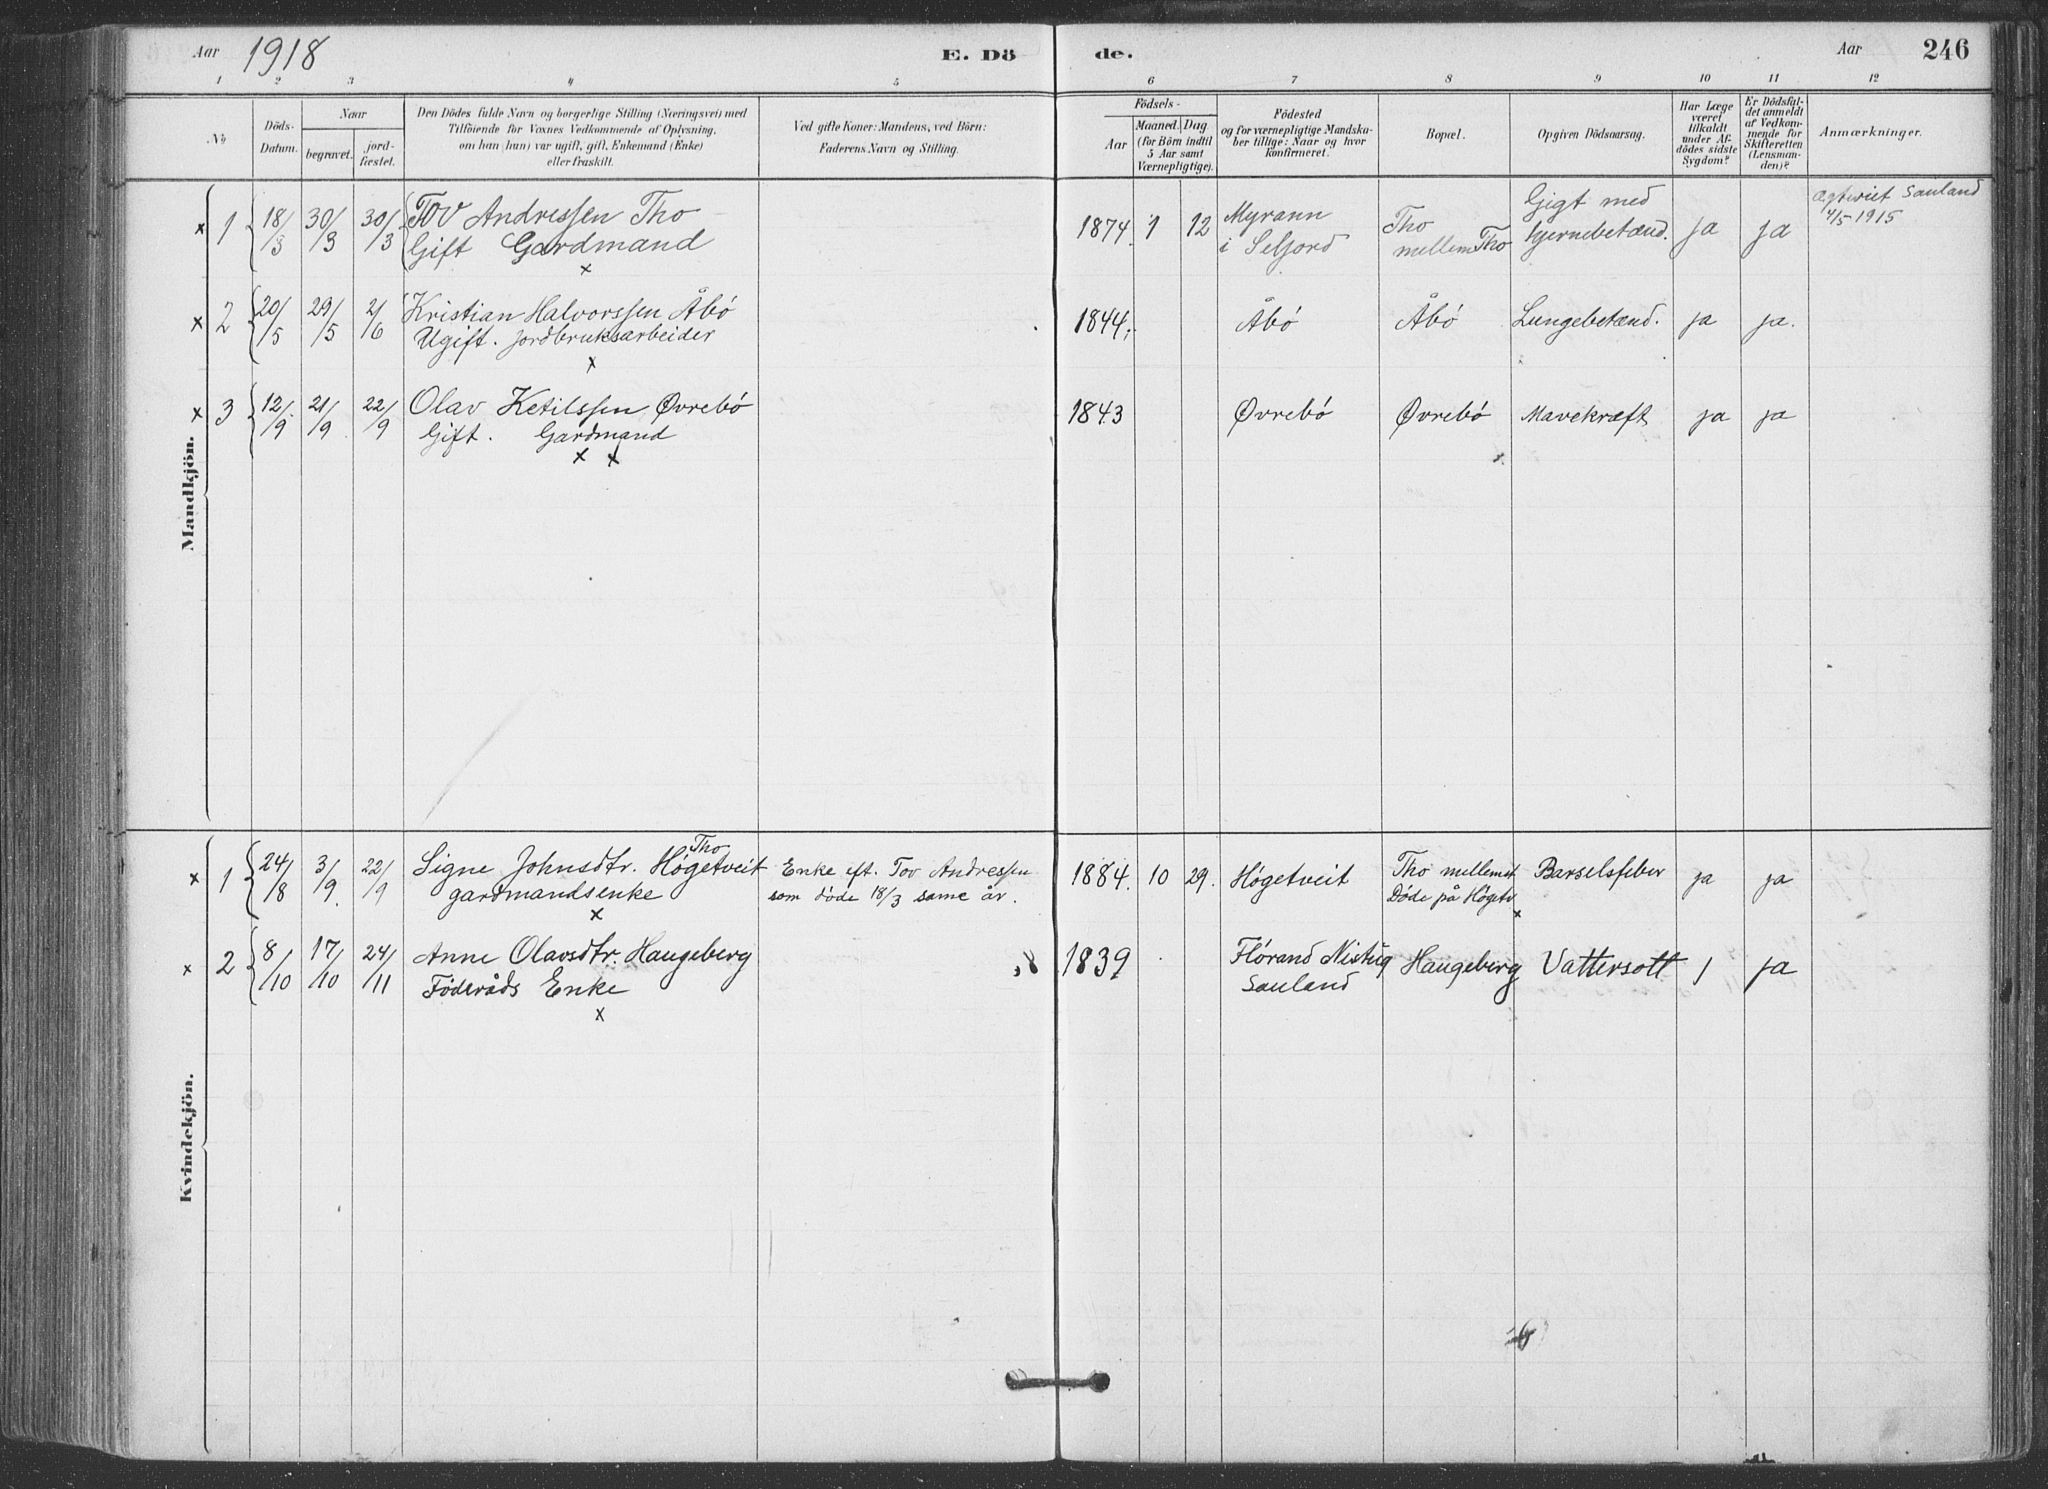 Aar 1918 E. Döde. Aar 246
1 2 3 4 5 6 7 8 9 10 11 12
No
Döds-Datum.
Naar
begravet.
jord-fæstet.
Den Dödes fulde Navn og borgerlige Stilling (Næringsvei) med
Tilföiende for Voxnes Vedkommende af Oplysning,
om han (hun) var ugift, gift, Enkemand (Enke)
eller fraskilt.
Ved gifte Koner: Mandens, ved Börn:
Faderens Navn og Stilling.
Födsels-
Aar
Maaned. Dag
(for Börn indtil
5 Aar samt
Værnepligtige).
Födested
og for værnepligtige Mandska-
ber tillige: Naar og hvor
konfirmeret.
Bopæl.
Opgiven Dödsaarsag.
Har Læge
været
tilkaldt
under Af-
dödes sidste
Sygdom?
Er Dödsfal-
det anmeldt
af Vedkom-
mende for
Skifteretten
(Lensman-
den)?
Anmærkninger.
Mandkjön.
x 1 18/3 30/3 30/3 Tov Andressen Tho 1874. 1 12 Myrann Tho Gigt med ja ja Sauland
Gift Gardmand i Seljord mellem Tho hjernebetænd. 4/5 1915
x
x 2 20/5 29/5 2/6 Kristian Halvorssen Åbó 1844. Åbó Åbó Lungebetænd. ja ja.
Ugift. Jordbruksarbeider
x
x 3 12/9 21/9 22/9 Olav Ketilssen Øvrebó 1843 Øvrebó Øvrebó Mavekræft ja ja
Gift. Gardmand
x x
Kvindekjön.
Tho
x 1 24/8 3/9. 22/9 Signe Johnsdtr. Högetveit Enke eft. Tov Andressen 1884. 10 29. Högetveit Tho mellemst Barselsfeber ja ja
gardmandsenke som döde 18/3 same år. Döde på Högetv.
x x
x 2 8/10 17/10 24/11 Anne Olavsdtr. Haugeberg 1839 Flórand Nistug Haugeberg Vattersott / ja
Föderåds Enke Sauland
x